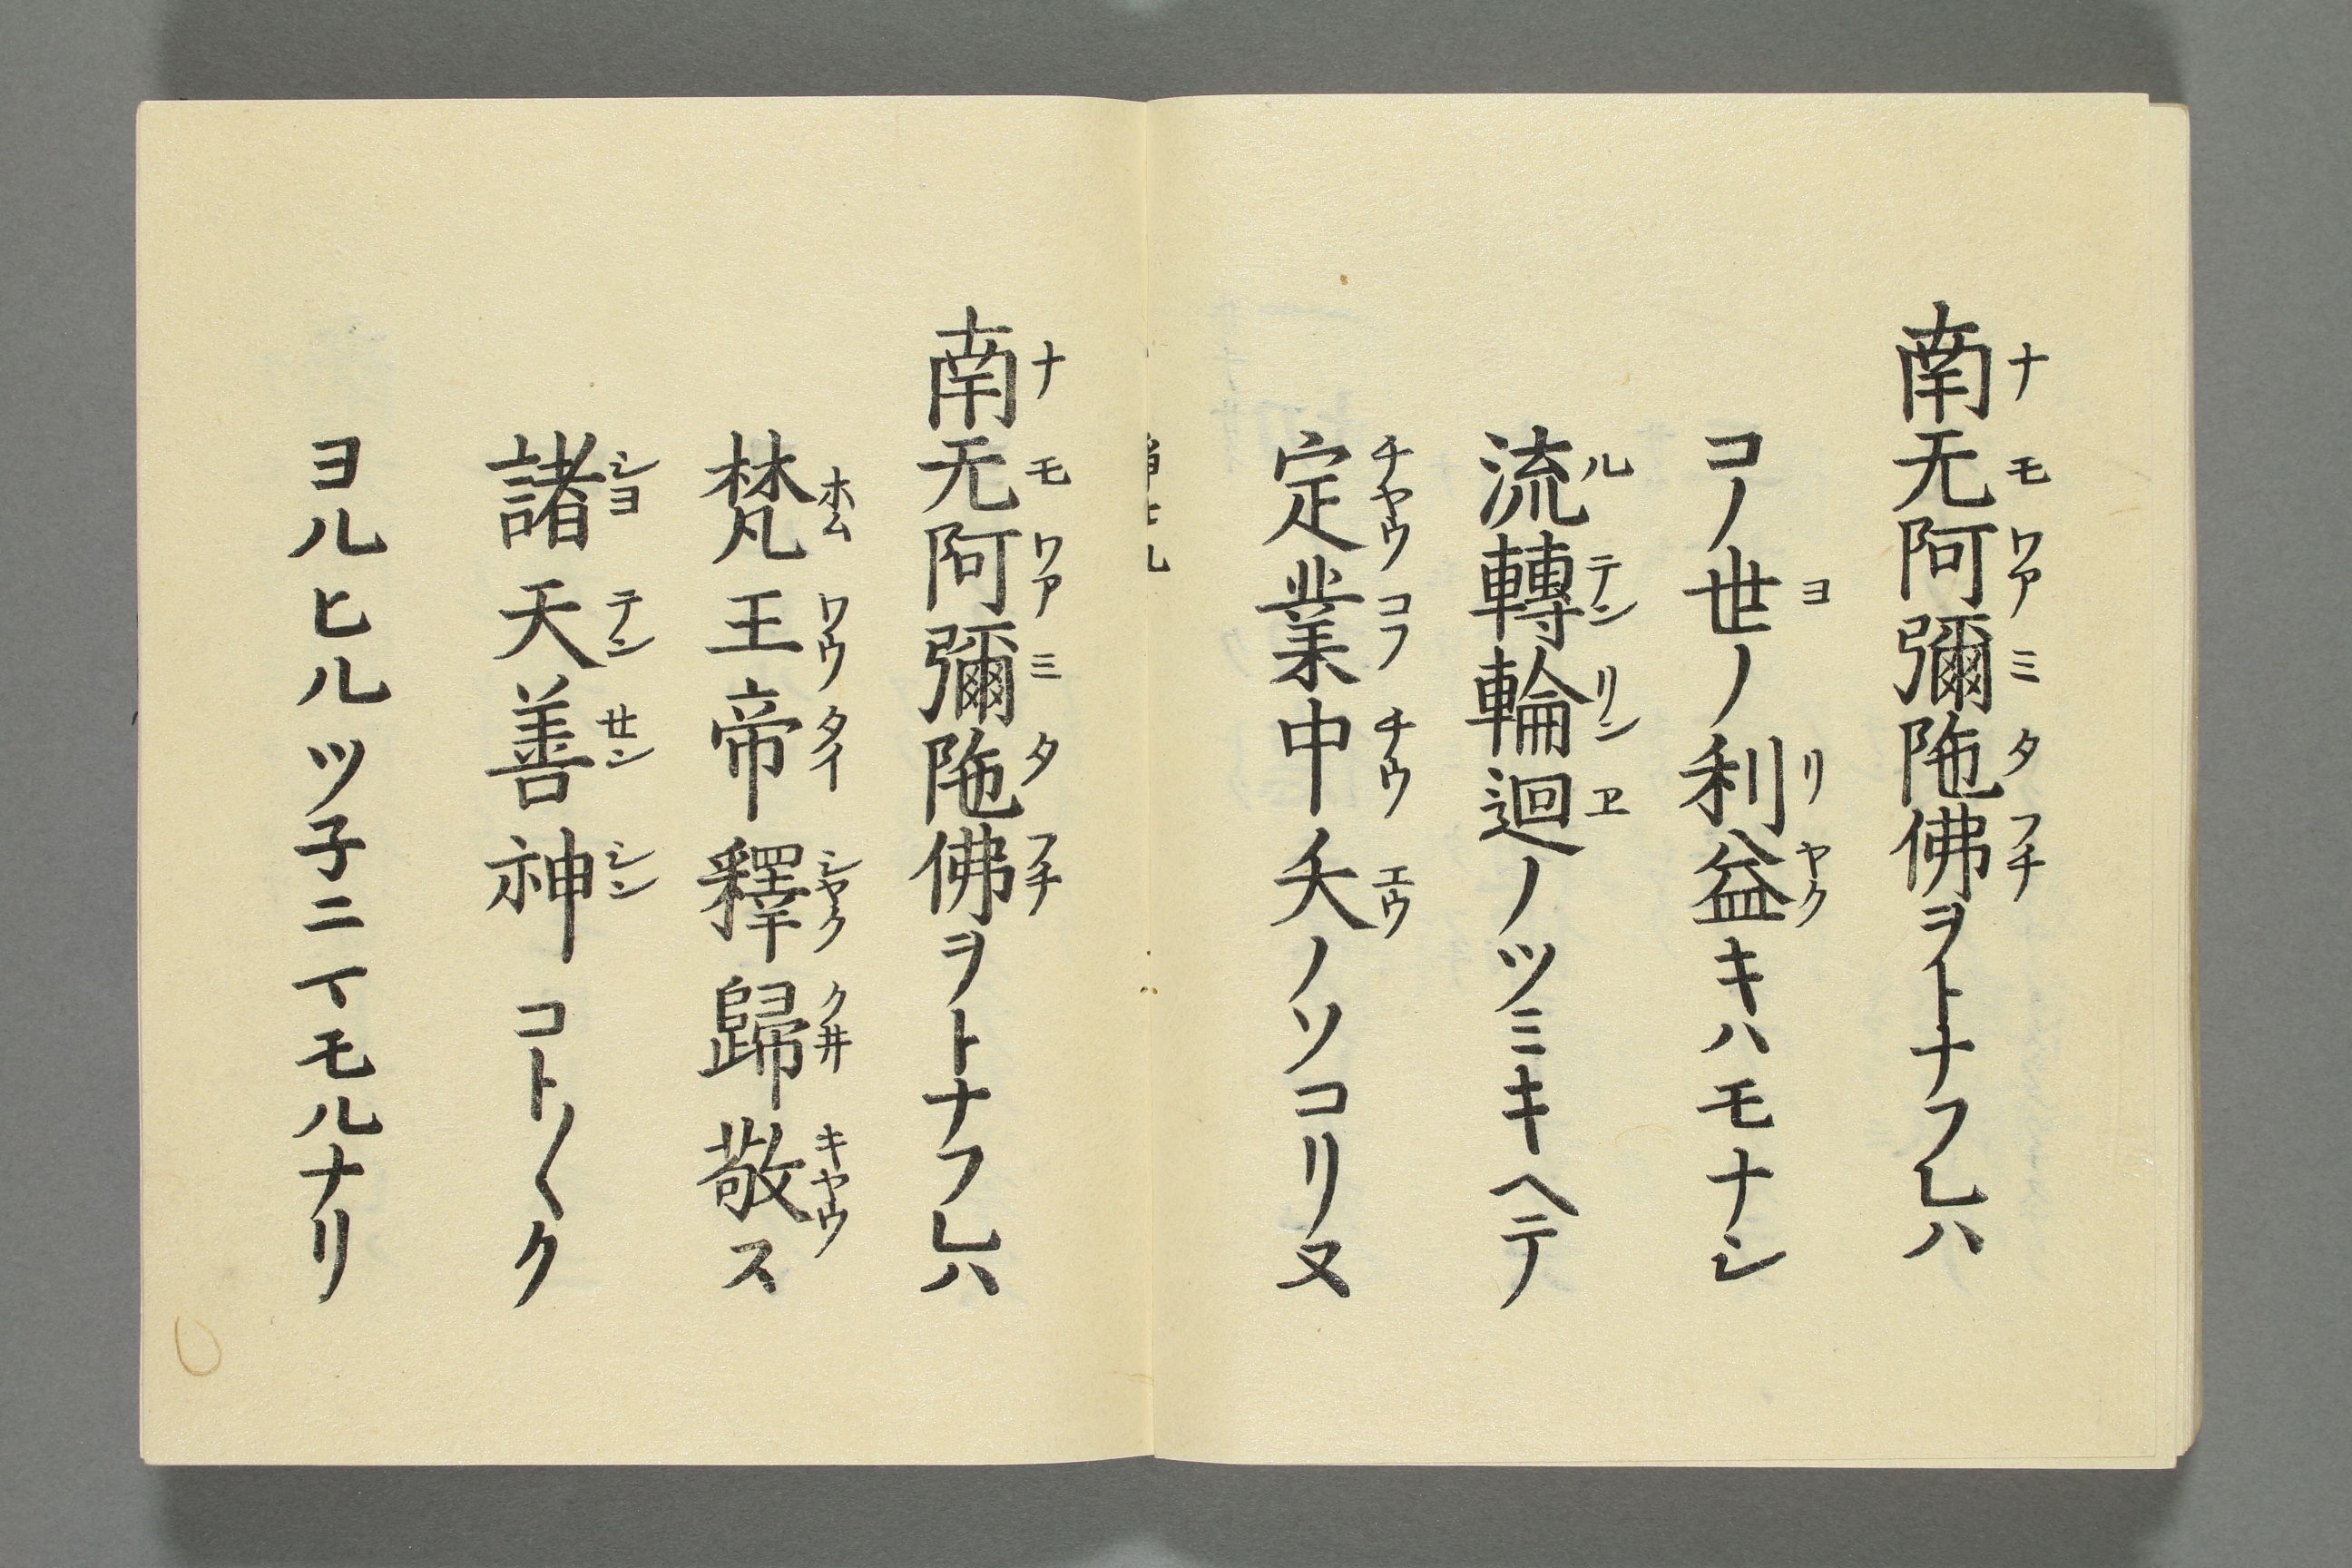 南无阿彌陁佛ヲトナフレハ
コノ世ノ利益キハモナシ
流轉輪迴ノツミキヘテ
定業中夭ノソコリヌ
南无阿彌陁佛ヲトナフレハ
梵王帝釋歸敬ス
諸天善神コト〱ク
ヨルヒルツ子ニイモルナリ